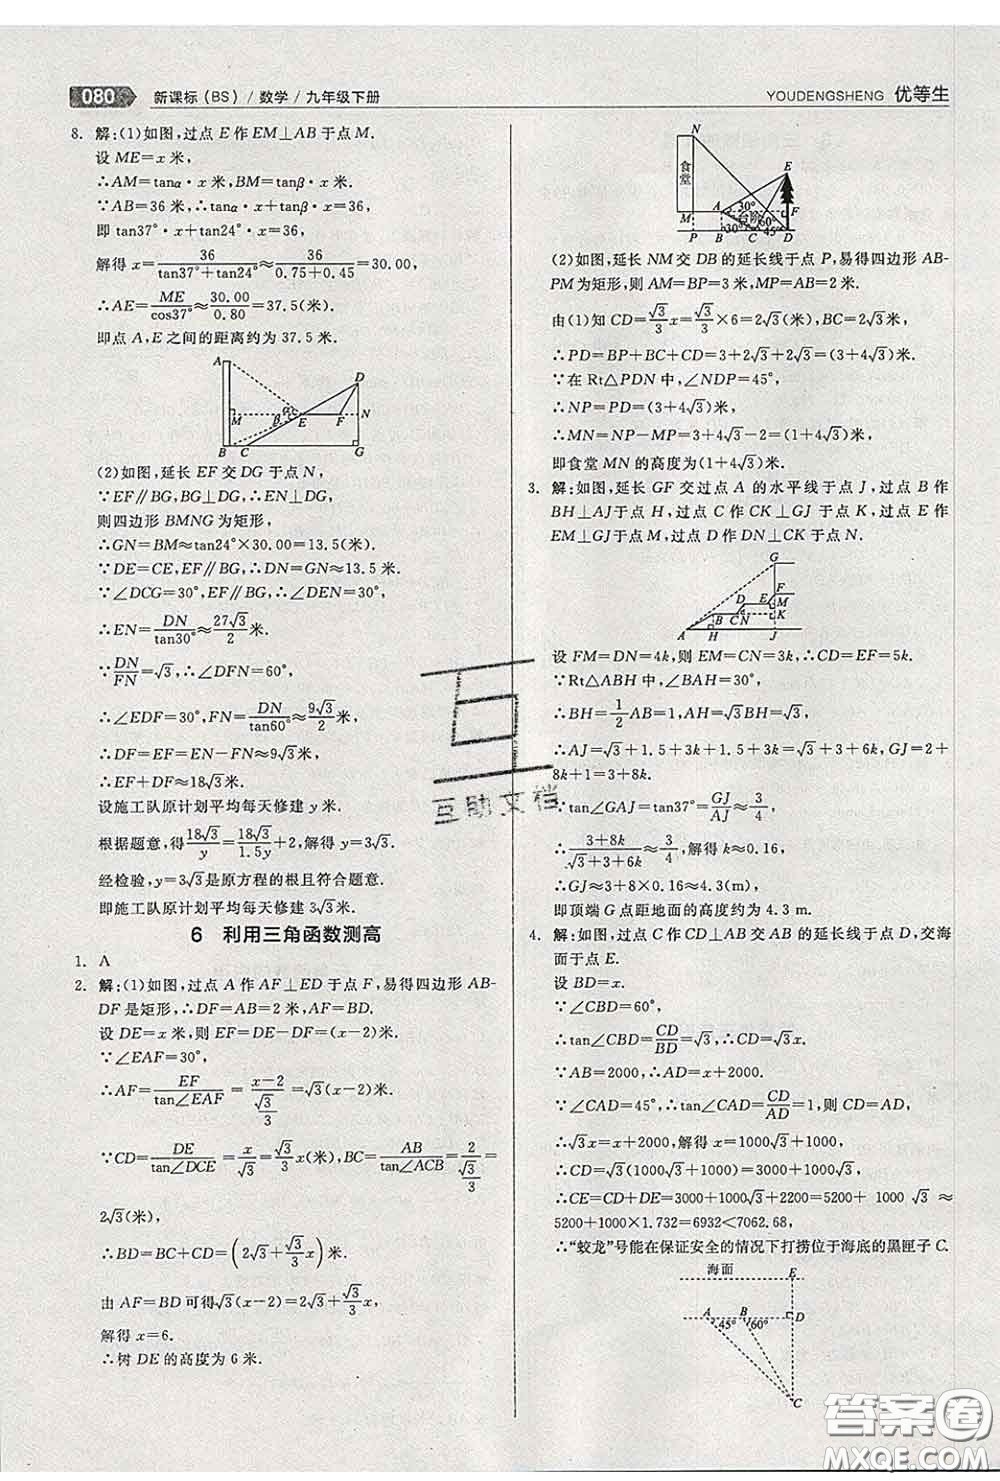 080 新课标(BS)/数学/九年级下册
YOUDENGSHENG 优等生
8. 解:(1)如图,过点E作EM⊥AB于点M.
设ME=x米,
∴AM=tanα·x米,BM=tanβ·x米,
∵AB=36米,∴tanα·x+tanβ·x=36,
即tan37°·x+tan24°·x=36,
解得x=36/(tan37°+tan24°)≈36/(0.75+0.45)=30.00,
∴AE=ME/cos37°≈30.00/0.80=37.5(米).
即点A,E之间的距离约为37.5米.
A D M α E F N β B C G
(2)如图,延长EF交DG于点N,
∵EF∥BG,BG⊥DG,∴EN⊥DG,
则四边形BMNG为矩形,
∴GN=BM≈tan24°×30.00=13.5(米).
∵DE=CE,EF∥BG,∴DN=GN≈13.5米.
∵∠DCG=30°,EF∥BG,∴∠DEN=30°,
∴EN=DN/tan30°≈27√3/2米.
∵DN/FN=√3,∴∠DFN=60°,
∴∠EDF=30°,FN=DN/tan60°≈9√3/2米,
∴DF=EF=EN-FN≈9√3米,
∴EF+DF≈18√3米.
设施工队原计划平均每天修建y米.
根据题意,得18√3/y=18√3/1.5y+2,解得y=3√3.
经检验,y=3√3是原方程的根且符合题意.
即施工队原计划平均每天修建3√3米.
6 利用三角函数测高
1. A
2. 解:(1)如图,过点A作AF⊥ED于点F,易得四边形AB-
DF是矩形,∴DF=AB=2米,AF=BD.
设DE=x米,则EF=DE-DF=(x-2)米.
∵∠EAF=30°,
∴AF=EF/tan∠EAF=(x-2)/(√3/3)=√3(x-2)米.
∵CD=DE/tan∠DCE=x/√3=√3/3x(米),BC=AB/tan∠ACB=2/(√3/3)=
2√3(米),
∴BD=BC+CD=(2√3+√3/3x)米.
由AF=BD可得√3(x-2)=2√3+√3/3x,
解得x=6.
∴树DE的高度为6米.
N 食堂 E A 30° F M 台阶 60° 30° 45° P B C D
(2)如图,延长NM交DB的延长线于点P,易得四边形AB-
PM为矩形,则AM=BP=3米,MP=AB=2米.
由(1)知CD=√3/3x=√3/3×6=2√3(米),BC=2√3米,
∴PD=BP+BC+CD=3+2√3+2√3=(3+4√3)米.
∵在Rt△PDN中,∠NDP=45°,
∴NP=PD=(3+4√3)米,
∴MN=NP-MP=3+4√3-2=(1+4√3)米.
即食堂MN的高度为(1+4√3)米.
3. 解:如图,延长GF交过点A的水平线于点J,过点B作
BH⊥AJ于点H,过点C作CK⊥GJ于点K,过点E作
EM⊥GJ于点M,过点D作DN⊥CK于点N.
G F E M D B C N K A H J
设FM=DN=4k,则EM=CN=3k,∴CD=EF=5k.
∵Rt△ABH中,∠BAH=30°,
∴BH=1/2AB=1,AH=√3BH=√3,
∴AJ=√3+1.5+3k+1.5+3k=√3+3+6k,GJ=2+
8k+1=3+8k.
∵tan∠GAJ=tan37°=GJ/AJ≈3/4,
∴(3+8k)/(√3+3+6k)≈3/4,解得k≈0.16,
∴GJ≈3+8×0.16≈4.3(m).
即顶端G点距地面的高度约为4.3 m.
4. 解:如图,过点C作CD⊥AB交AB的延长线于点D,交海
面于点E.
设BD=x.
∵∠CBD=60°,
∴tan∠CBD=CD/BD=√3,∴CD=√3x.
∵AB=2000,∴AD=x+2000,
∵∠CAD=45°,∴tan∠CAD=CD/AD=1,则CD=AD,
∴√3x=x+2000,解得x=1000√3+1000,
∴CD=√3(1000√3+1000)=3000+1000√3,
∴CE=CD+DE=3000+1000√3+2200=5200+1000√3≈
5200+1000×1.732=6932<7062.68,
∴“蛟龙”号能在保证安全的情况下打捞位于海底的黑匣子C.
海面 E A B D 45° 60° C
互助文档
答案圈
MXQE.COM